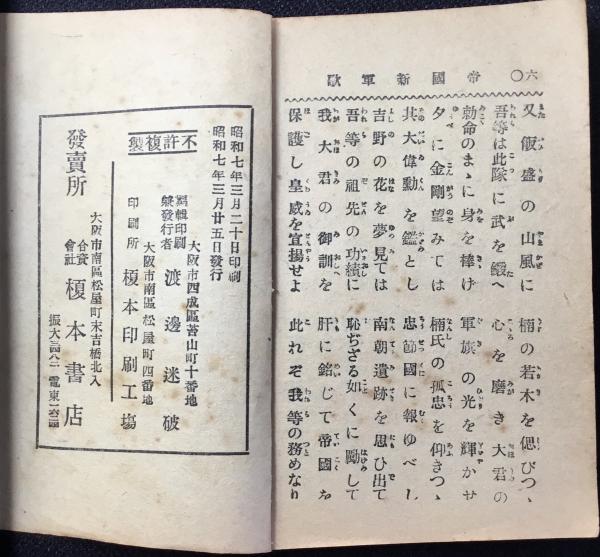 帝國新軍歌
六〇
又飯盛の山風に　楠の若木を偲びつゝ
吾等は此隊に武を鍛へ　心を磨き大君の
勅命のまゝに身を捧げ　軍旗の光を輝かせ
夕に金剛望みては　楠氏の孤忠を仰きつゝ
其大偉勳を鑑とし　忠節國に報ゆべし
吉野の花を夢見ては　南朝遺跡を思ひ出て
吾等の祖先の功績に　恥ぢざる如くに勵して
我大君の御訓を　肝に銘じて帝國を
保護し皇威を宣揚せよ　此れぞ我等の務めなり
昭和七年三月二十日印刷
昭和七年三月廿五日發行
不許複製
大阪市西成區苔山町十番地
編輯印刷兼發行者　渡邊迷破
大阪市南區松屋町四番地
印刷所　榎本印刷工場
大阪市南區松屋町末吉橋北入
發賣所　合資會社　榎本書店